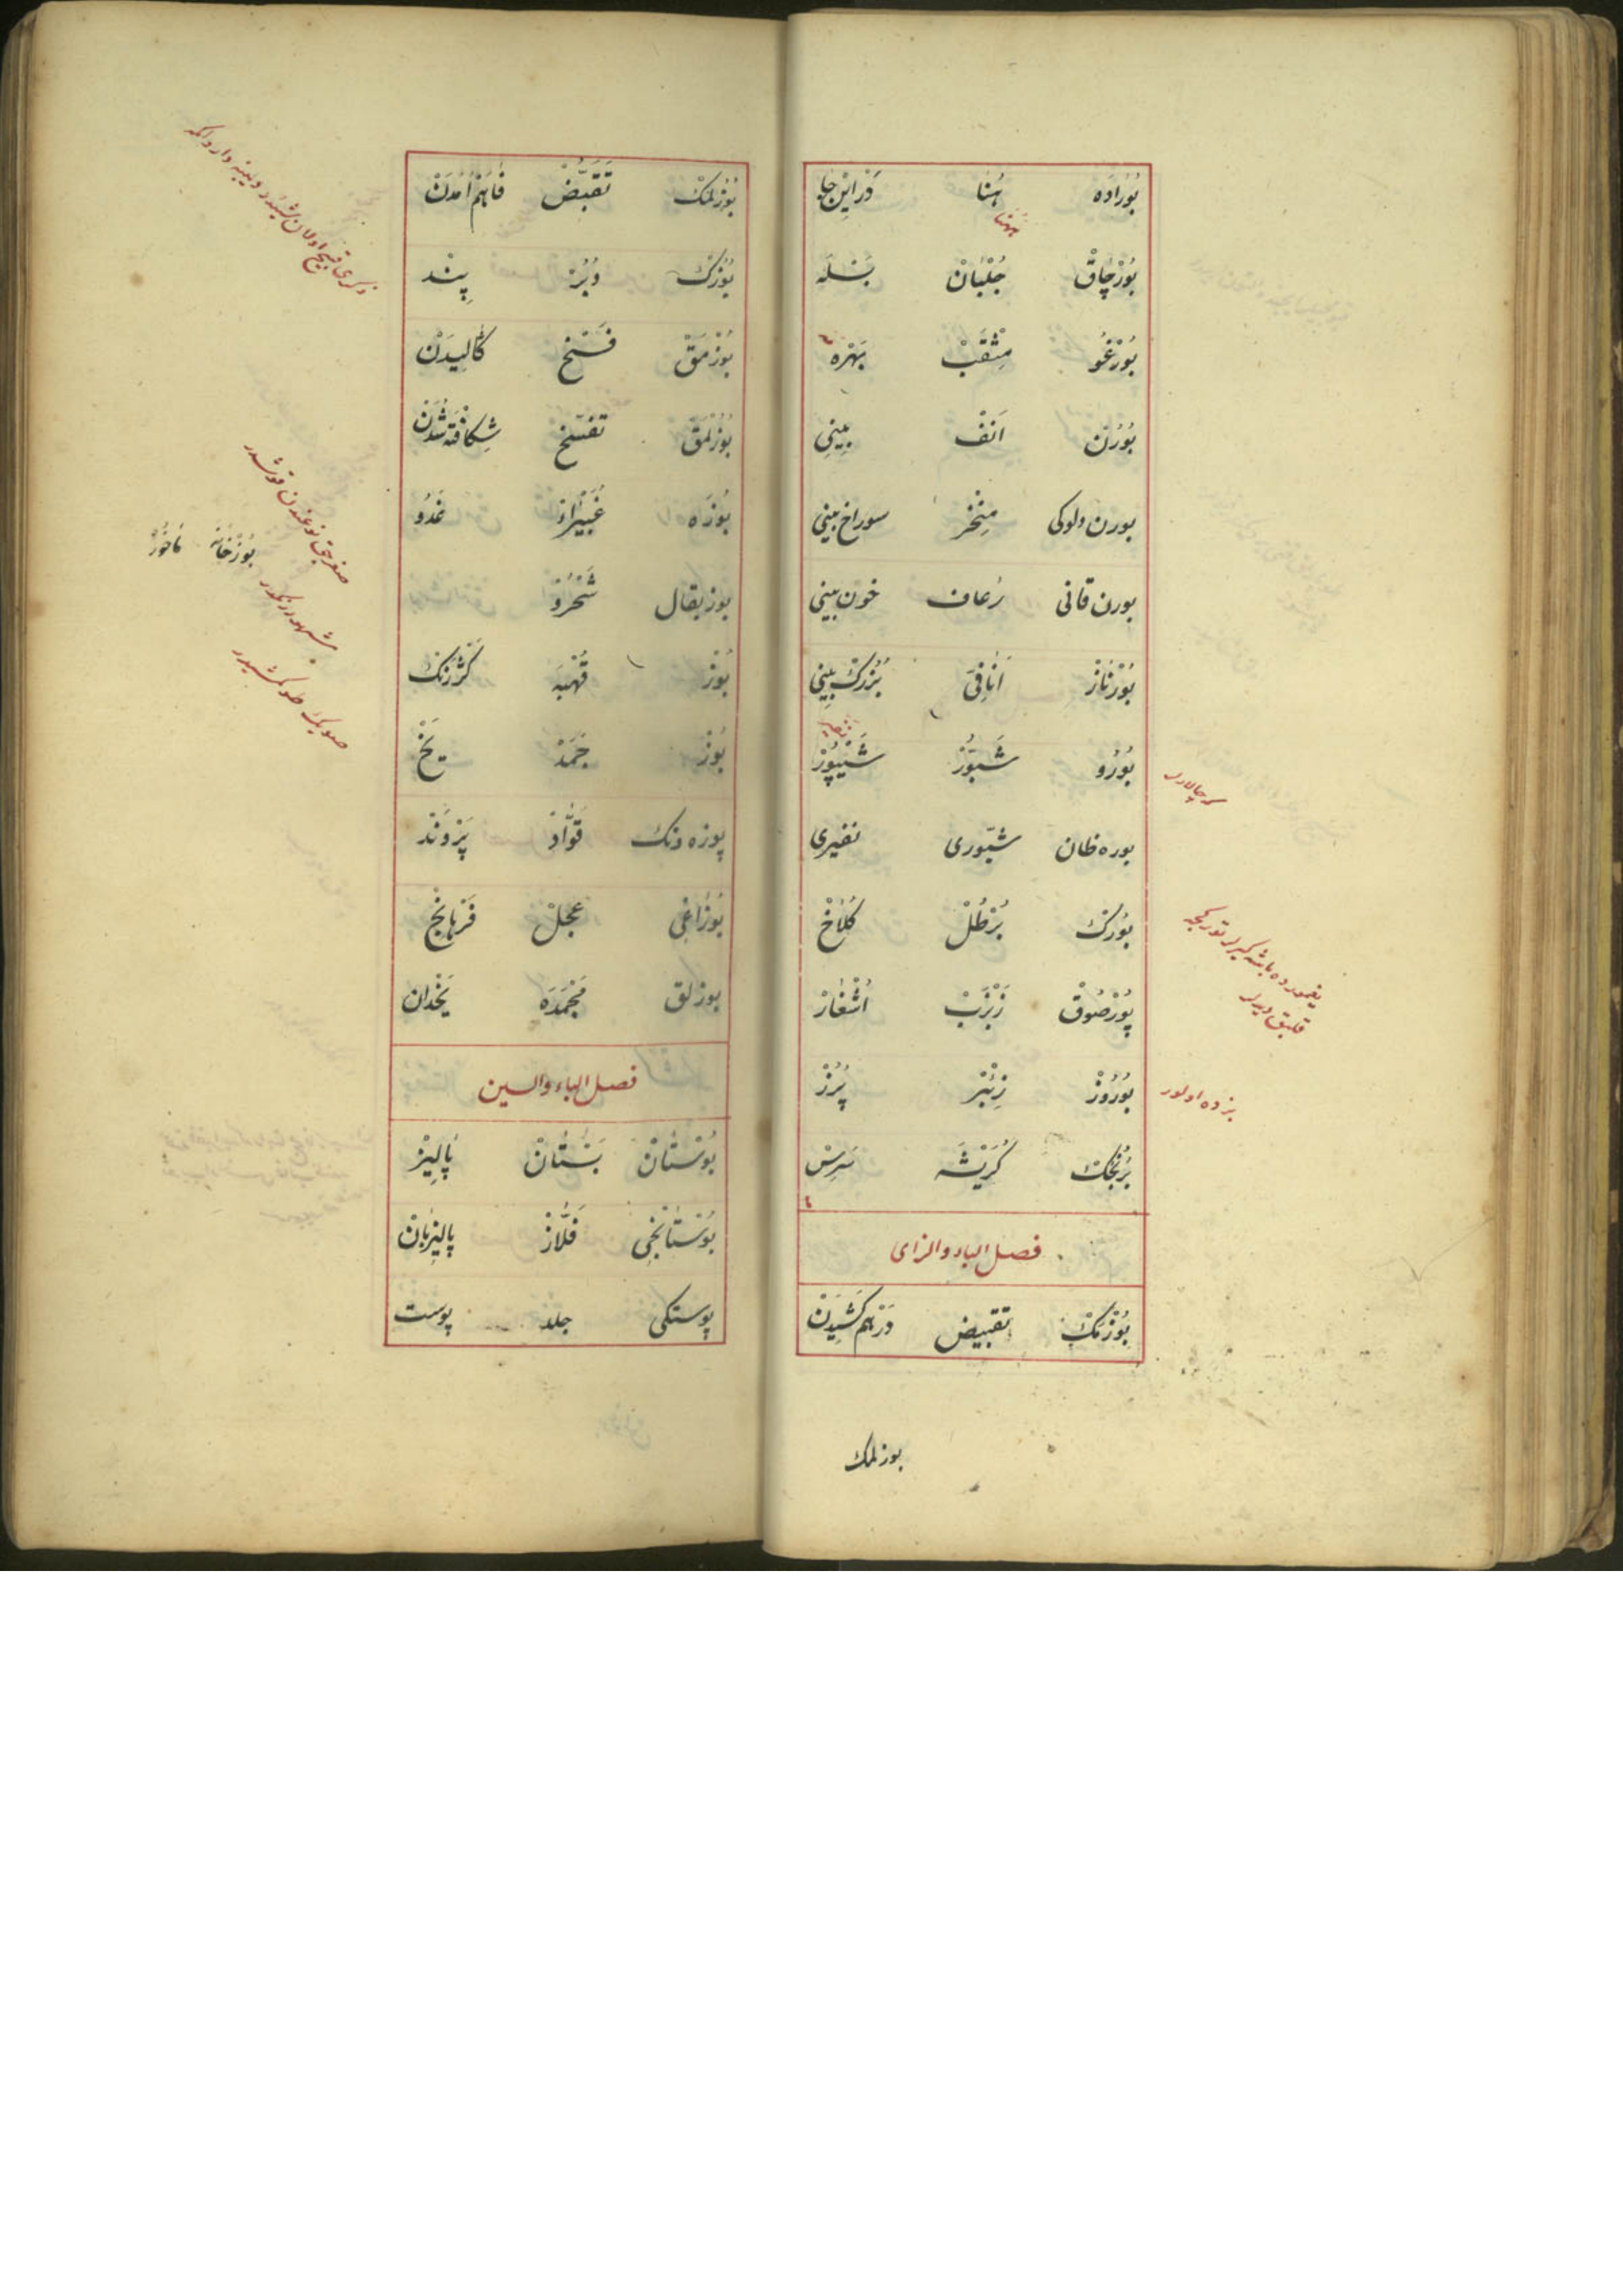 بُورَادَه هُنَا دَرْ اٖينْ جَا
هٰهنا
بُورْچَاقْ جُلْبَانْ بُسْلَه
بُورْغُو مِثْقَبْ بَهْرَه
بُورُنْ اَنْفْ بِينِي
بورن دلوكی مِنْخَرْ سوراخ بینی
بورن قانی رُعاف خون بینی
بُورْنَازْ اُنَافِیْ بُزُرْكْ بِینِی
بُورُو شَبُّورْ شَیْپُورْ
بوره ظان شبّوری نفیری
بُورُكْ بُرْطُلْ كُلَاخْ
پُورْصُوقْ زَبْزَبْ اُشْغَارْ
بُورُوزْ زِئْبَرْ پُرُزْ
بُرُنْجُكْ كُرَيْشَه سَرِسْ
فصل الباء والزای
بُوزْمَكْ تقبیض دَرْهَمْ كَشِيدَنْ
بوزلمك
سرچالارلر
یغمورده باشه كیرلر توركجه
قلبق دیرلر
بزده اولور
بُوزُلْمَكْ تَقَبُّضْ فَاهَمْ اٰمَدَنْ
بُوزُكْ دُبُرْ پِنْد
بُوزْمَقْ فَسْخ كَالِيدَنْ
بُوزُلْمَقْ تَفَسُّخ شِكَافْتَه شُدَنْ
بُوزَه غُبَيْرَاءْ غَدُو
بوز بقال شُحْرُوْ
بُوزْ قُهْبَه كَژْرَنْك
بُوزْ جَمَدْ يَخْ
پوزه ونك قَوَّادْ پَرْوَنْد
بُوزَاغِی عِجْلْ فَرْهَانِجْ
بوزلق مَجْمَدَه يَخْدَان
فصل الباء والسین
بُوسْتَانْ بُسْتَانْ پَالِيزْ
بُوسْتَانْجِی فَلَّازْ پَالِيزْبَانْ
پوستكی جلد پوست
بُوزْخَانَه